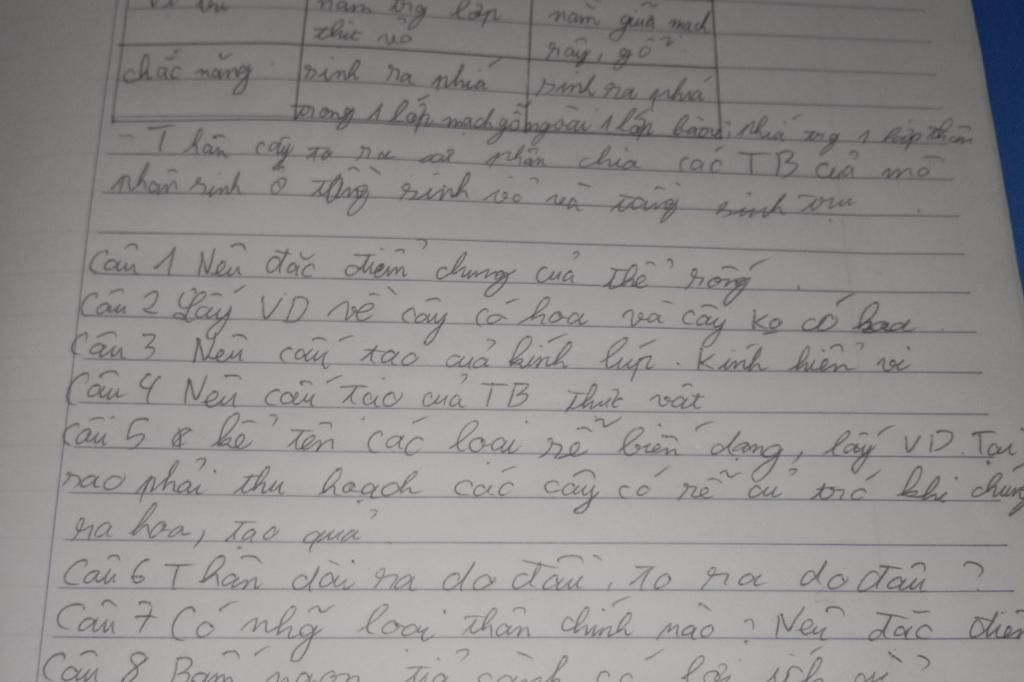 nằm trg lớp nằm giữa mạch
thịt vỏ rây, gỗ
chắc năng sinh ra phiá sinh ra phiá
trong 1 lớp mạch gỗ ngoài 1 lớp phiá trg 1 lớp
- Thân cây to ra sự phân chia các TB củă mô
phân sinh ở tầng sinh vỏ và tầng sinh trụ
Câu 1 Nêu đặc điểm chung cuả thể rống
Câu 2 Lấy VD về cây có hoa và cây ko có hoa
Câu 3 Nêu cấu tạo cuả kính lúp. Kính hiển vi
Câu 4 Nêu cấu tạo cuả TB thực vật
Câu 5 kể tên các loại rễ biến dạng, lấy VD. Tại
sao phải thu hoạch các cây có rễ củ trc khi chúng
ra hoa, tạo quả
Câu 6 Thân dài ra do đâu, to ra do đâu ?
Câu 7 Có nhg loại thân chính nào ? Nêu đặc điểm
Câu 8 Bấm ngọn tiả cành có lợi ích gì?